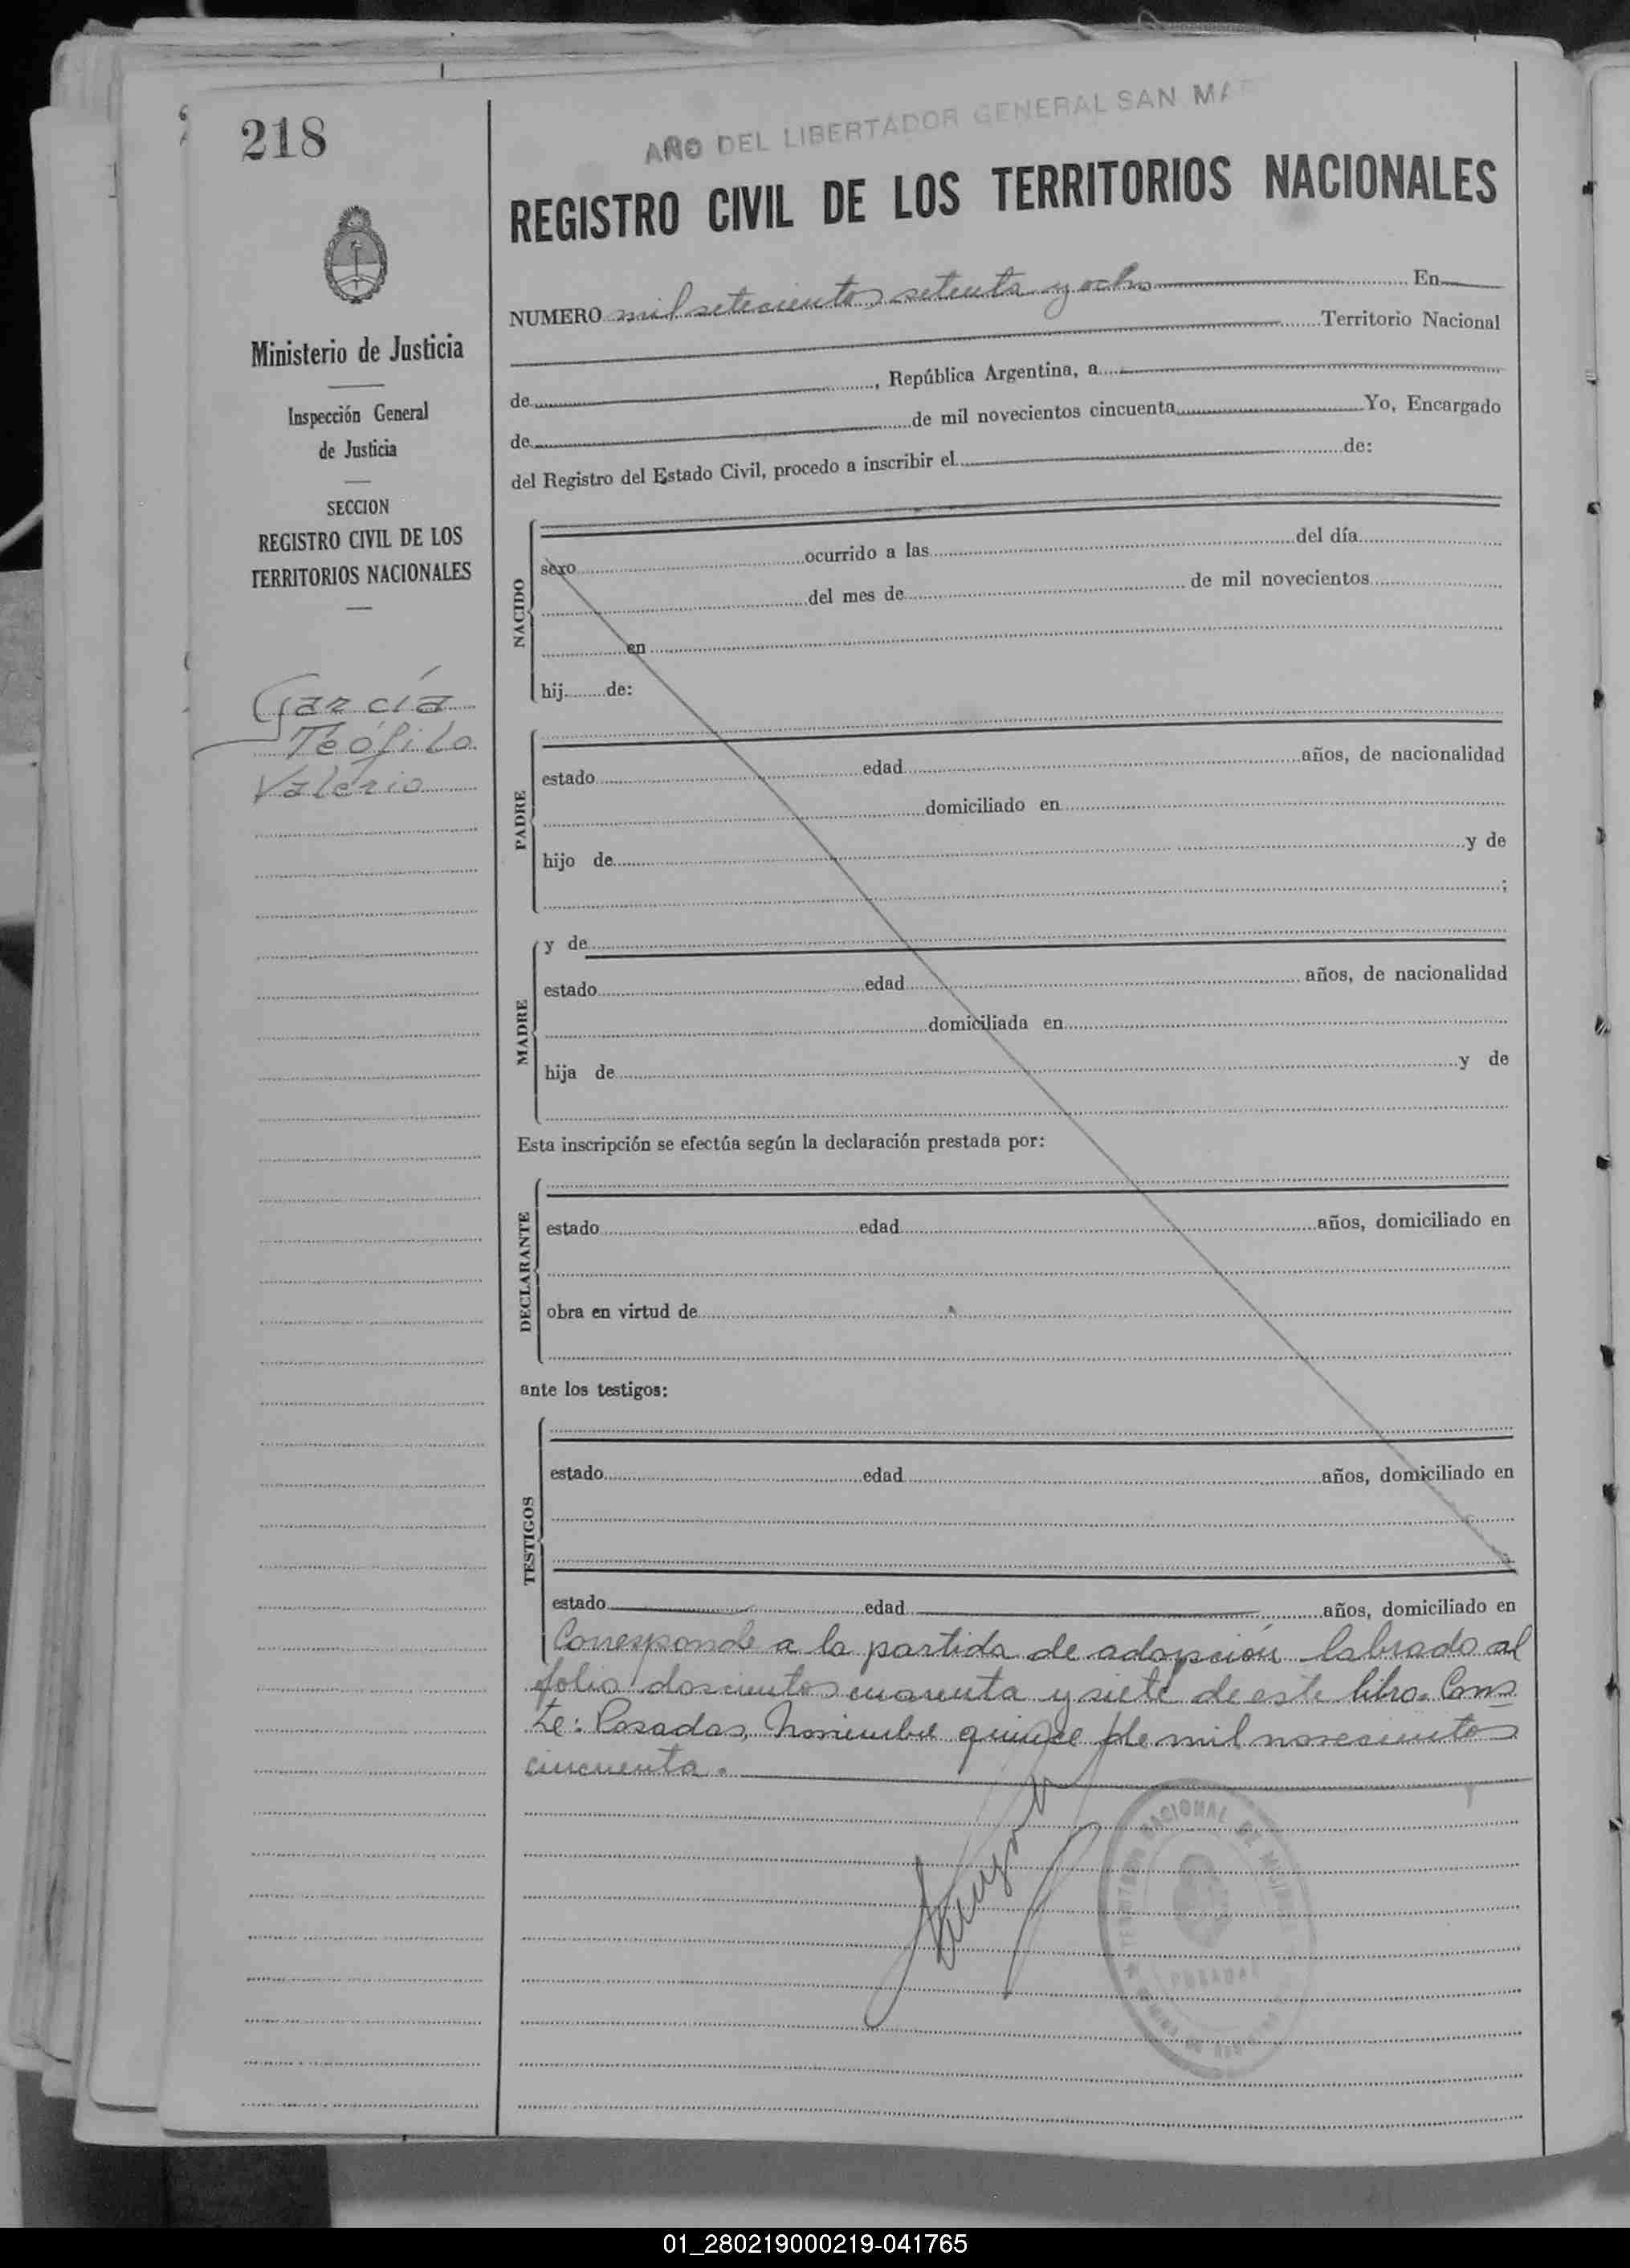 218
AÑO DEL LIBERTADOR GENERAL SAN MAR
REGISTRO CIVIL DE LOS TERRITORIOS NACIONALES
Ministerio de Justicia
Inspección General
de Justicia
SECCION
REGISTRO CIVIL DE LOS
TERRITORIOS NACIONALES
García
Teófilo
Valerio
NUMERO mil setecientos setenta y ocho En
Territorio Nacional
de, República Argentina, a
de de mil novecientos cincuenta Yo, Encargado
del Registro del Estado Civil, procedo a inscribir el de:
NACIDO
sexo ocurrido a las del día
del mes de de mil novecientos
en
hij de:
PADRE
estado edad años, de nacionalidad
domiciliado en
hijo de y de
;
MADRE
y de
estado edad años, de nacionalidad
domiciliada en
hija de y de
Esta inscripción se efectúa según la declaración prestada por:
DECLARANTE
estado edad años, domiciliado en
obra en virtud de
ante los testigos:
TESTIGOS
estado edad años, domiciliado en
estado edad años, domiciliado en
Corresponde a la partida de adopción labrado al
folio doscientos cuarenta y siete de este libro. Cons
te: Posadas, Noviembre quince de mil novecientos
cincuenta.
TERRITORIO NACIONAL DE MISIONES
POSADAS
01_280219000219-041765